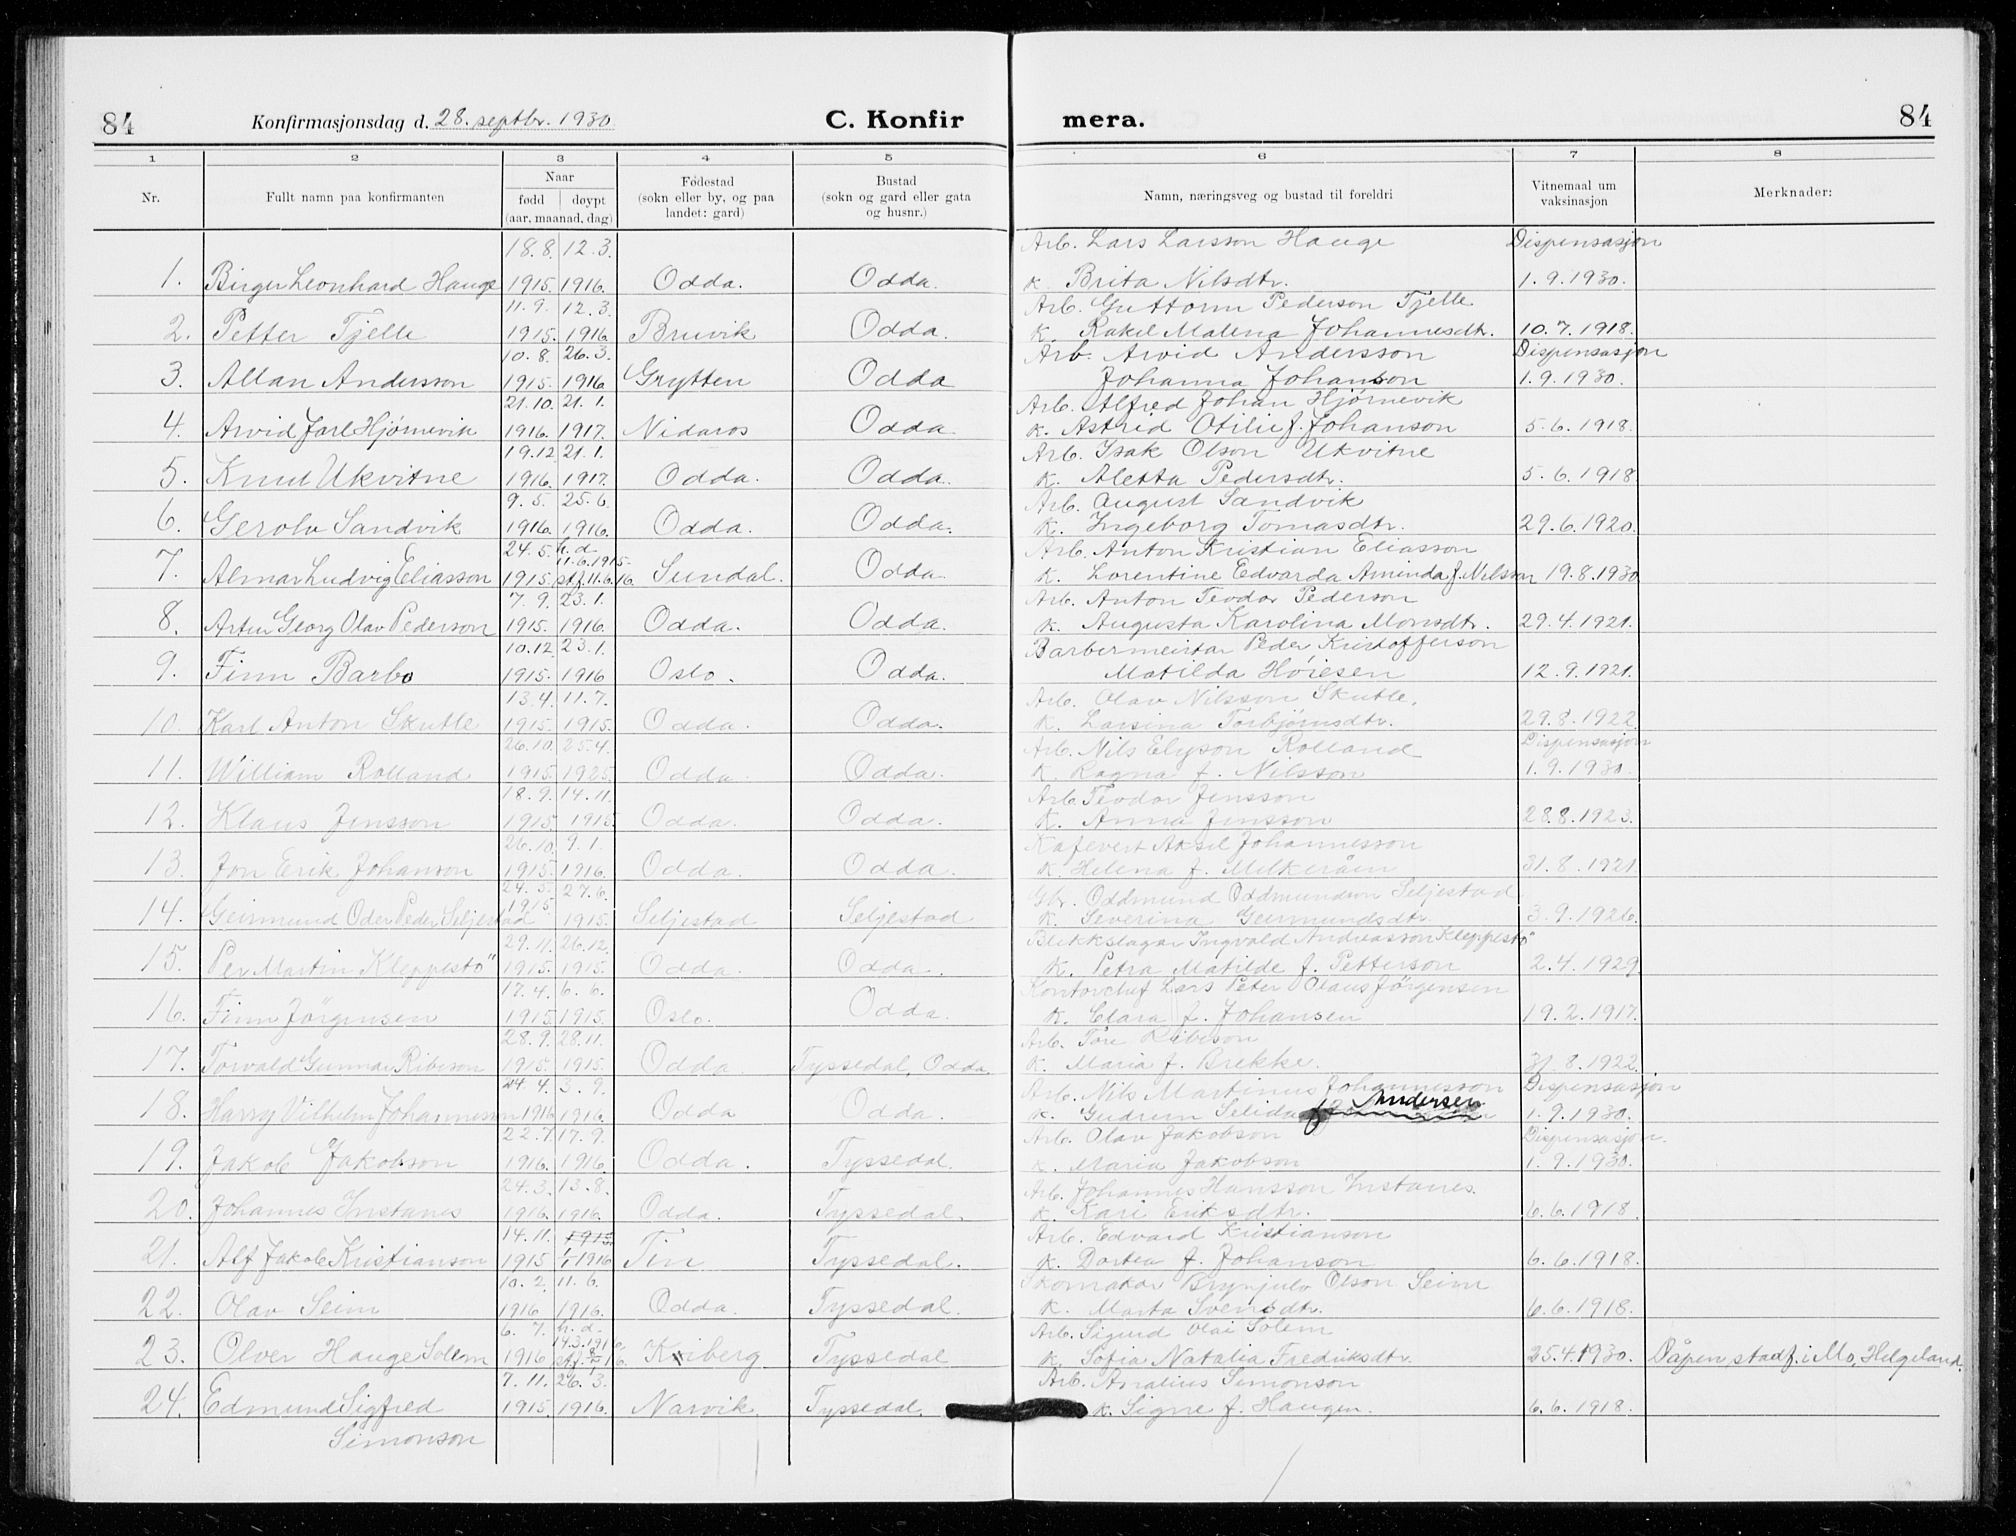 84 Konfirmasjonsdag d. 28. septbr. 1930 C. Konfir mera. 84
1 2 3 4 5 6 7 8
Nr. Fullt namn paa konfirmanten Naar født døypt (aar, maanad, dag) Fødestad (sokn eller by, og paa landet: gard) Bustad (sokn og gard eller gata og husnr.) Namn, næringsveg og bustad til foreldri Vitnemaal um vaksinasjon Merknader:
18.8. 12.3. Arb. Lars Larsson Hauge Dispensasjon
1. Birger Leonhard Hauge 1915. 1916. Odda. Odda. K. Brita Nilsdtr. 1.9.1930.
11.9. 12.3. Arb. Guttorm Pederson Tjelle
2. Petter Tjelle 1915. 1916. Bruvik Odda. K. Rakel Malena Johannesdtr. 10.7.1918.
10.8. 26.3. Arb. Arvid Andersson Dispensasjon
3. Allan Andersson 1915. 1916 Grytten Odda Johanna Johanson 1.9.1930.
21.10. 21.1. Arb. Alfred Johan Hjørnevik
4. Arvid Jarl Hjørnevik 1916. 1917. Nidaros Odda. K. Astrid Otilie f. Johanson 5.6.1918.
19.12 21.1. Arb. Isak Olson Ukvitne
5. Knud Ukvitne 1916. 1917. Odda. Odda. K. Aletta Pedersdtr. 5.6.1918
9.5. 25.6. Arb. August Sandvik
6. Gerolv Sandvik 1916. 1916. Odda. Odda. K. Ingeborg Tomasdtr. 29.6.1920.
24.5. h.d. 11.6.1915. Arb. Anton Kristian Eliasson
7. Almar Ludvig Eliasson 1915. stf. 11.6.16. Sundal. Odda. K. Lorentine Edvarda Aminda f. Nilsson 19.8.1930
7.9. 23.1. Arb. Anton Teodor Pederson
8. Artur Georg Olav Pederson 1915. 1916. Odda. Odda. K. Augusta Karolina Monsdtr. 29.4.1921.
10.12. 23.1. Barbermeistar Peder Kristofferson
9. Finn Barbo 1915. 1916 Oslo. Odda. Matilda Høiesen 12.9.1921.
13.4. 11.7. Arb. Olav Nilsson Skutle.
10. Karl Anton Skutle 1915. 1915. Odda. Odda. K. Larsina Torbjørnsdtr. 29.8.1922
26.10. 25.4. Arb. Nils Elyson Rolland Dispensasjon
11. William Rolland 1915. 1925. Odda. Odda. K. Ragna f. Nilsson 1.9.1930.
18.9. 14.11. Arb. Teodor Jensson
12. Klaus Jensson 1915. 1915. Odda. Odda. K. Anna Jensson 28.8.1923.
26.10. 9.1. Kafevert Aksel Johannesson
13. Jon Erik Johanson 1915. 1916. Odda. Odda. K. Helena f. Melkeråen 31.8.1921
24.5. 27.6. Gbr. Oddmund Oddmundson Seljestad
14. Geirmund Oder Peder Seljestad 1915 1915. Seljestad Seljestad K. Severina Geirmundsdtr. 3.9.1926.
29.11. 26.12. Blikkslagar Ingvald Andreasson Kleppestö
15. Per Martin Kleppestö 1915. 1915. Odda. Odda. K. Petra Matilde f. Petterson 2.4.1929
17.4. 6.6. Kontorchef Lars Peter Olaus Jörgensen
16. Finn Jörgensen 1915. 1915. Oslo. Odda. K. Clara f. Johansen 19.2.1917.
28.9. 28.11. Arb. Tore Ribeson
17. Torvald Gunnar Ribeson 1915. 1915. Odda Tyssedal, Odda K. Maria f. Brekke. 31.8.1922
24.4. 3.9. Arb. Nils Martinus Johannesson Dispensasjon
18. Harry Vilhelm Johannesson 1916 1916. Odda Odda. K. Gudrun Selida Andersen 1.9.1930.
22.7. 17.9. Arb. Olav Jakobson Dispensasjon.
19. Jakob Jakobson 1916. 1916. Odda. Tyssedal. K. Maria Jakobson 1.9.1930.
24.3. 13.8. Arb. Johannes Hansson Instanes.
20. Johannes Instanes 1916. 1916. Odda. Tyssedal. K. Kari Eriksdtr. 6.6.1918.
14.11. 1915. Arb. Edvard Kristianson
21. Alf Jakob Kristianson 1915 1/1 1916 Tin Tyssedal. K. Dortea f. Johanson 6.6.1918.
10.2. 11.6. Skomakar Brynjulv Olson Seim
22. Olav Seim 1916 1916. Odda. Tyssedal. K. Marta Svensdtr. 6.6.1918.
6.7. h.d. 14.3.1916. Arb. Sigurd Olai Solem
23. Olver Hauge Solem 1916 Kiberg Tyssedal K. Sofia Natalia Fredriksdtr. 25.4.1930. Dåpen stadf. i Mo, Helgeland.
7.11. 26.3. Arb. Analius Simonson
24. Edmund Sigfred 1915. 1916. Narvik Tyssedal. K. Signe f. Haugen. 6.6.1918.
Simonson